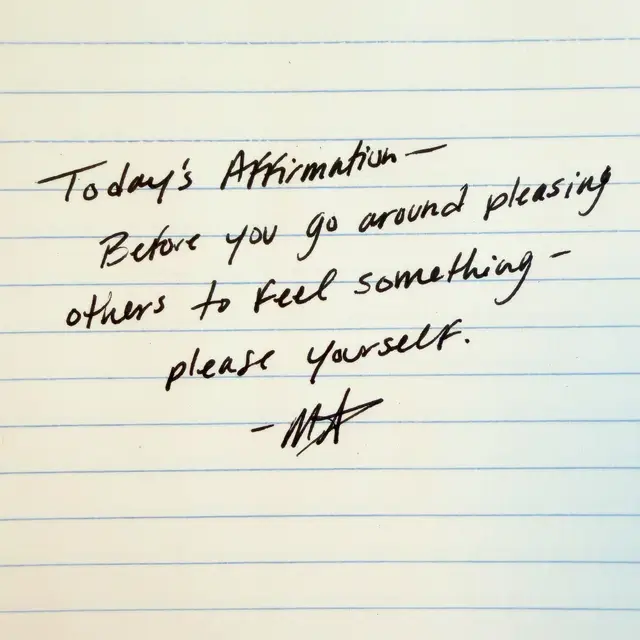 Today's Affirmation—
Before you go around pleasing
others to feel something-
please yourself.
-MA